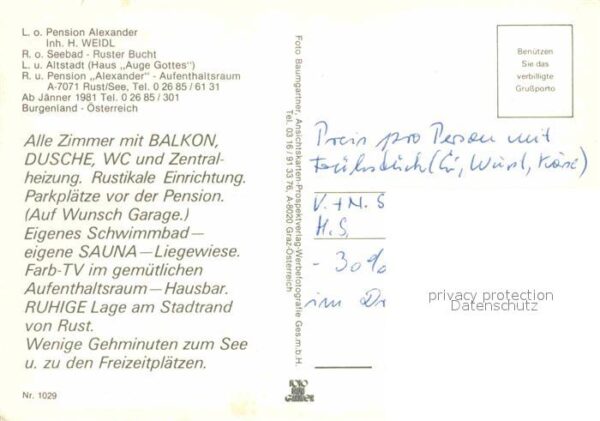 L. o. Pension Alexander
Inh. H. WEIDL
R. o. Seebad - Ruster Bucht
L. u. Altstadt (Haus „Auge Gottes")
R. u. Pension „Alexander" - Aufenthaltsraum
A-7071 Rust/See, Tel. 0 26 85 / 61 31
Ab Jänner 1981 Tel. 0 26 85 / 301
Burgenland - Österreich
Alle Zimmer mit BALKON,
DUSCHE, WC und Zentral-
heizung. Rustikale Einrichtung.
Parkplätze vor der Pension.
(Auf Wunsch Garage.)
Eigenes Schwimmbad —
eigene SAUNA — Liegewiese.
Farb-TV im gemütlichen
Aufenthaltsraum — Hausbar.
RUHIGE Lage am Stadtrand
von Rust.
Wenige Gehminuten zum See
u. zu den Freizeitplätzen.
Nr. 1029
Foto Baumgartner, Ansichtskarten-Prospektverlag-Werbefotografie Ges.m.b.H.
Tel. 03 16 / 91 33 76, A-8020 Graz-Österreich
FOTO
BAUM
GARTNER
Benützen
Sie das
verbilligte
Grußporto
Preis pro Person mit
Frühstück (Ei, Wurst, Käse)
V. + N. S
H. S.
- 30%
im
privacy protection
Datenschutz